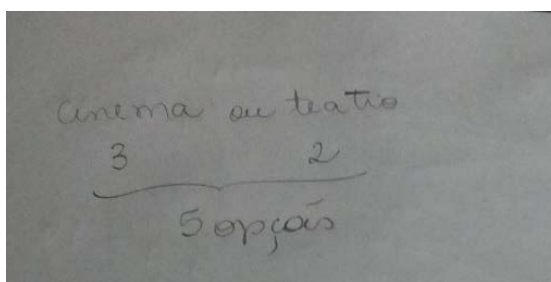 cinema ou teatro
3 2
5 opçois